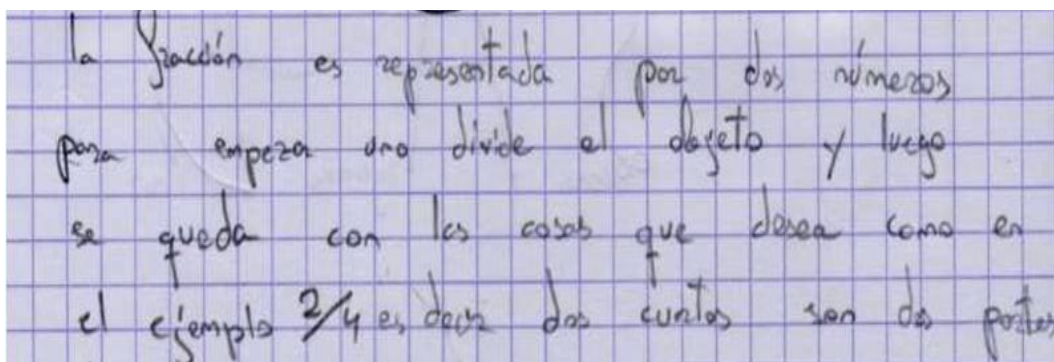 la fracción es representada por dos números
para empezar uno divide el objeto y luego
se queda con las cosas que desea como en
el ejemplo 2/4 es decir dos cuartos son dos partes